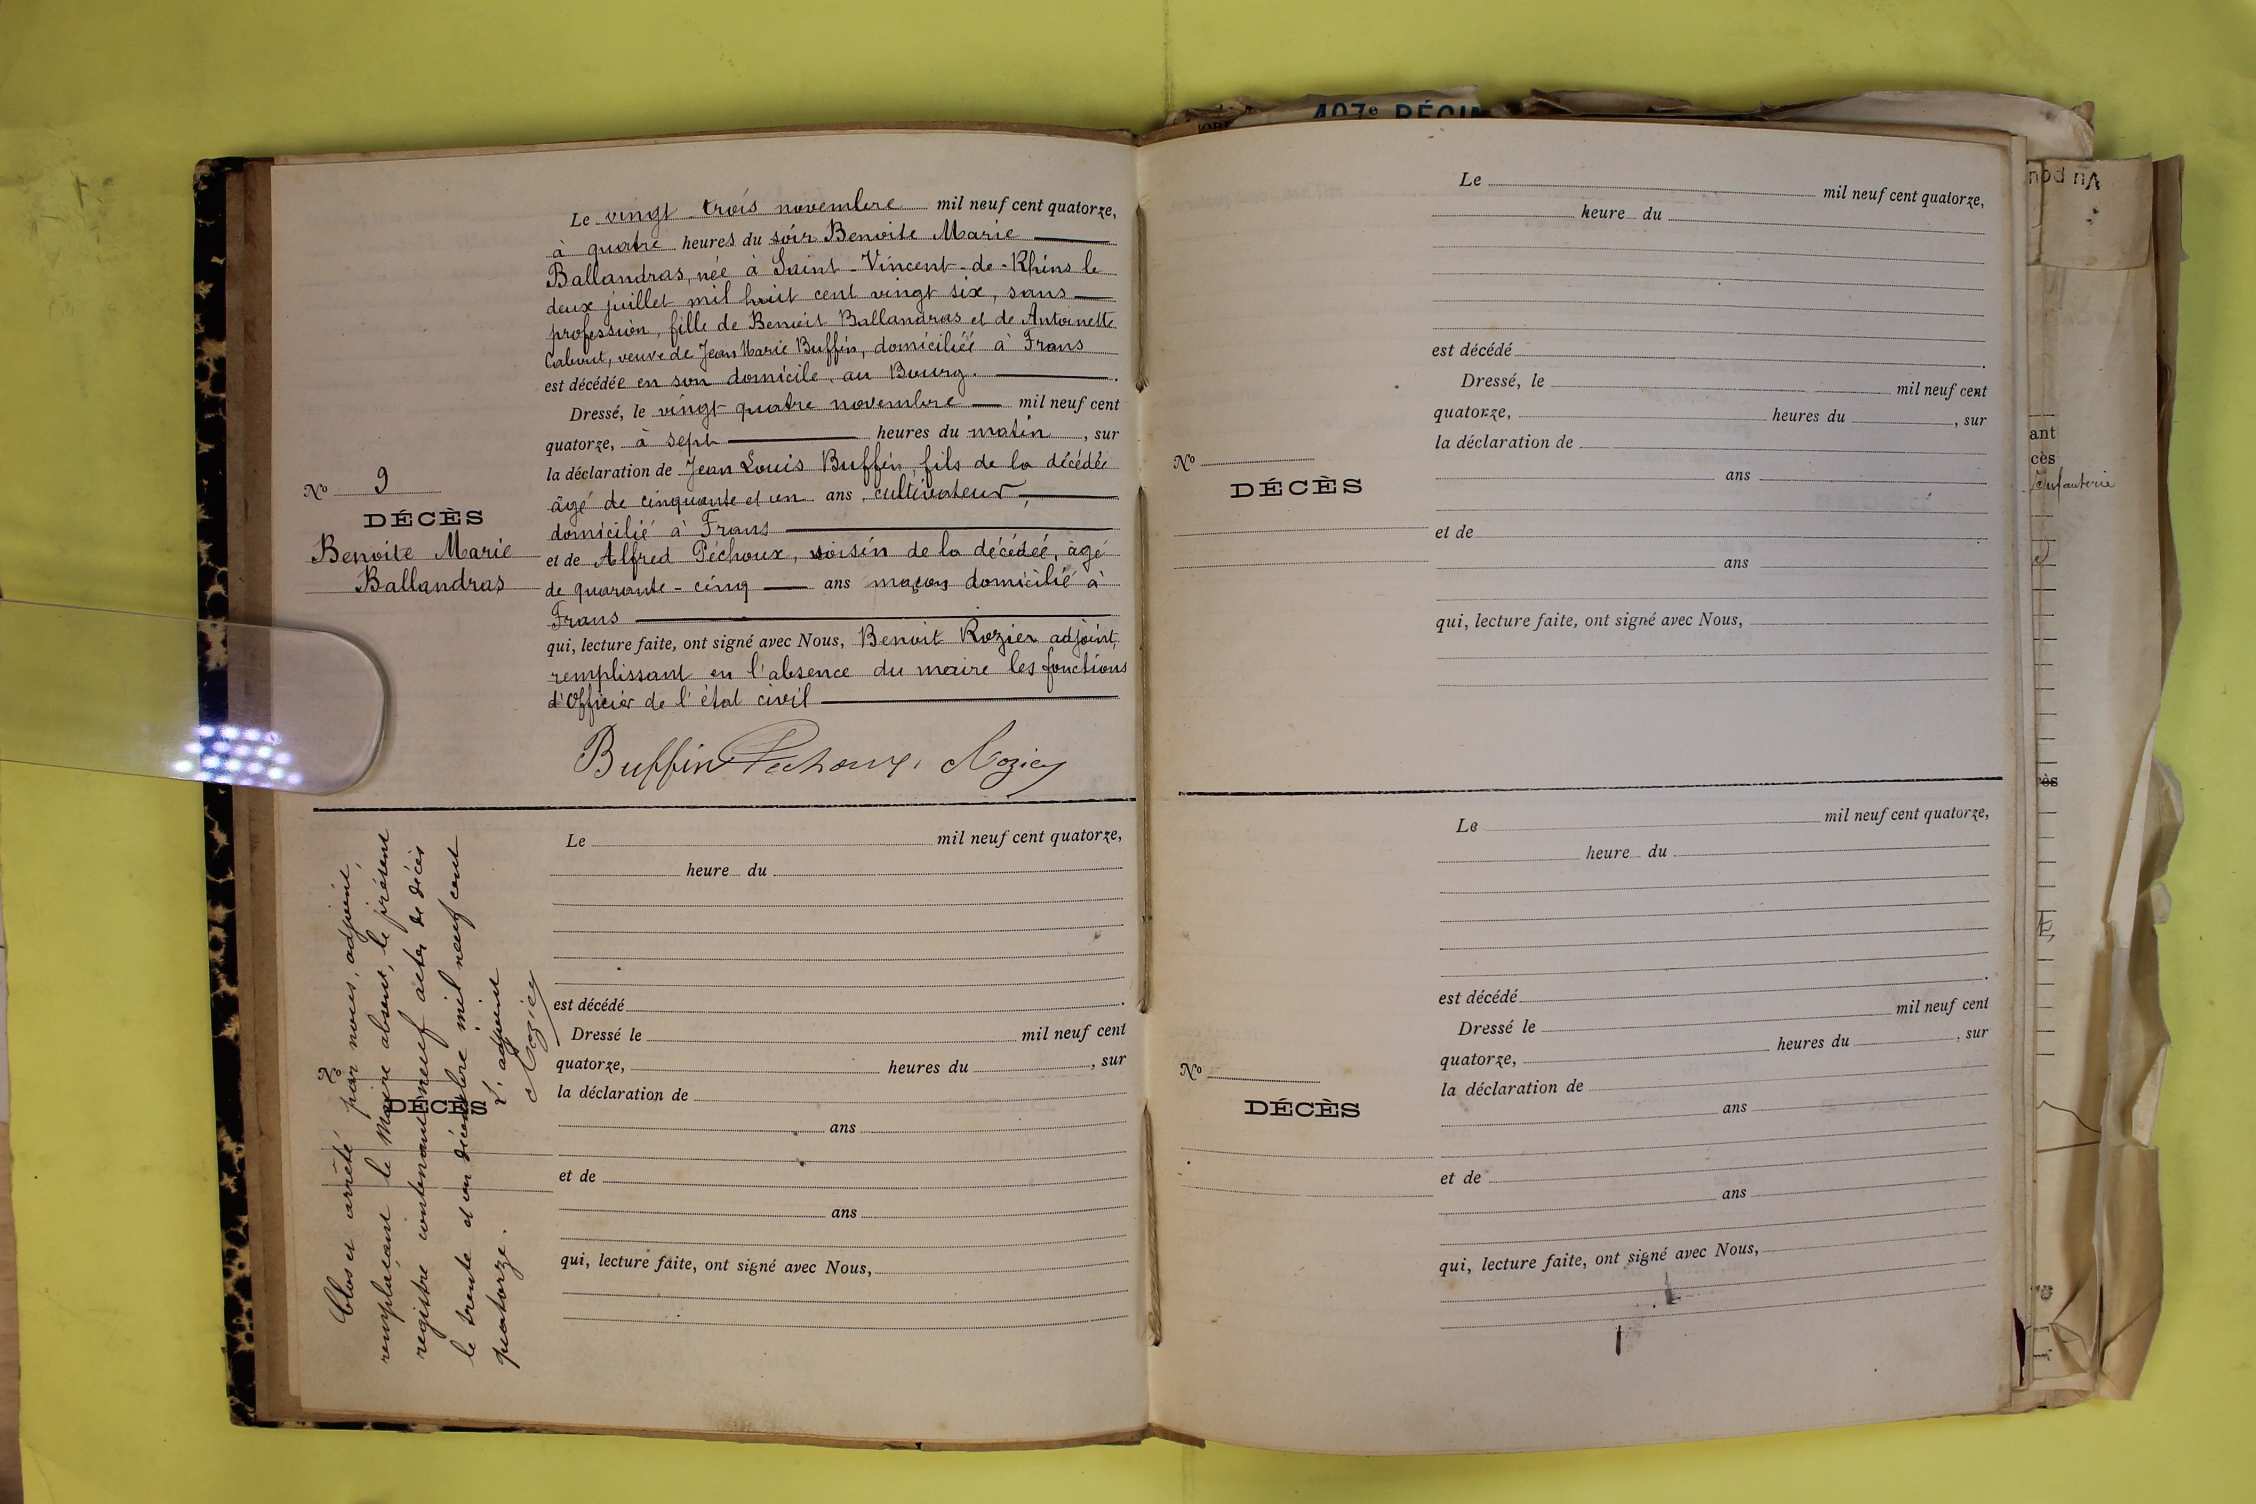 Le vingt trois novembre mil neuf cent quatorze,
à quatre heures du soir Benoite Marie
Ballandras, née à Saint-Vincent-de-Rhins le
deux juillet mil huit cent vingt six, sans
profession, fille de Benoit Ballandras et de Antoinette
veuve de Jean Marie Buffin, domiciliée à Frans
est décédée en son domicile, au Bourg.
Dressé, le vingt quatre novembre mil neuf cent
quatorze, à sept heures du matin, sur
la déclaration de Jean Louis Buffin, fils de la décédée
âgé de cinquante et un ans, cultivateur,
domicilié à Frans
et de Alfred Péchoux, voisin de la décédée, âgé
de quarante-cinq ans maçon domicilié à
Frans
qui, lecture faite, ont signé avec Nous, Benoit Rozier adjoint,
remplissant en l'absence du maire les fonctions
d'Officier de l'état civil
Buffin Péchoux Rozier
No 9
DÉCÈS
Benoite Marie
Ballandras
Clos et arrêté par nous, adjoint,
remplaçant le Maire absent, le présent
registre contenant neuf actes de décès
le trente et un décembre mil neuf cent
quatorze.
L'adjoint
Rozier
No
DÉCÈS
Le mil neuf cent quatorze,
heure du
est décédé .
Dressé le mil neuf cent
quatorze, heures du , sur
la déclaration de
ans
et de
ans
qui, lecture faite, ont signé avec Nous,
407e RÉGIM
Le mil neuf cent quatorze,
heure du
est décédé .
Dressé, le mil neuf cent
quatorze, heures du , sur
la déclaration de
ans
et de
ans
qui, lecture faite, ont signé avec Nous,
No
DÉCÈS
Le mil neuf cent quatorze,
heure du
est décédé .
Dressé le mil neuf cent
quatorze, heures du , sur
la déclaration de
ans
et de
ans
qui, lecture faite, ont signé avec Nous,
No
DÉCÈS
Vu pour
ant
cès
infanterie
ès